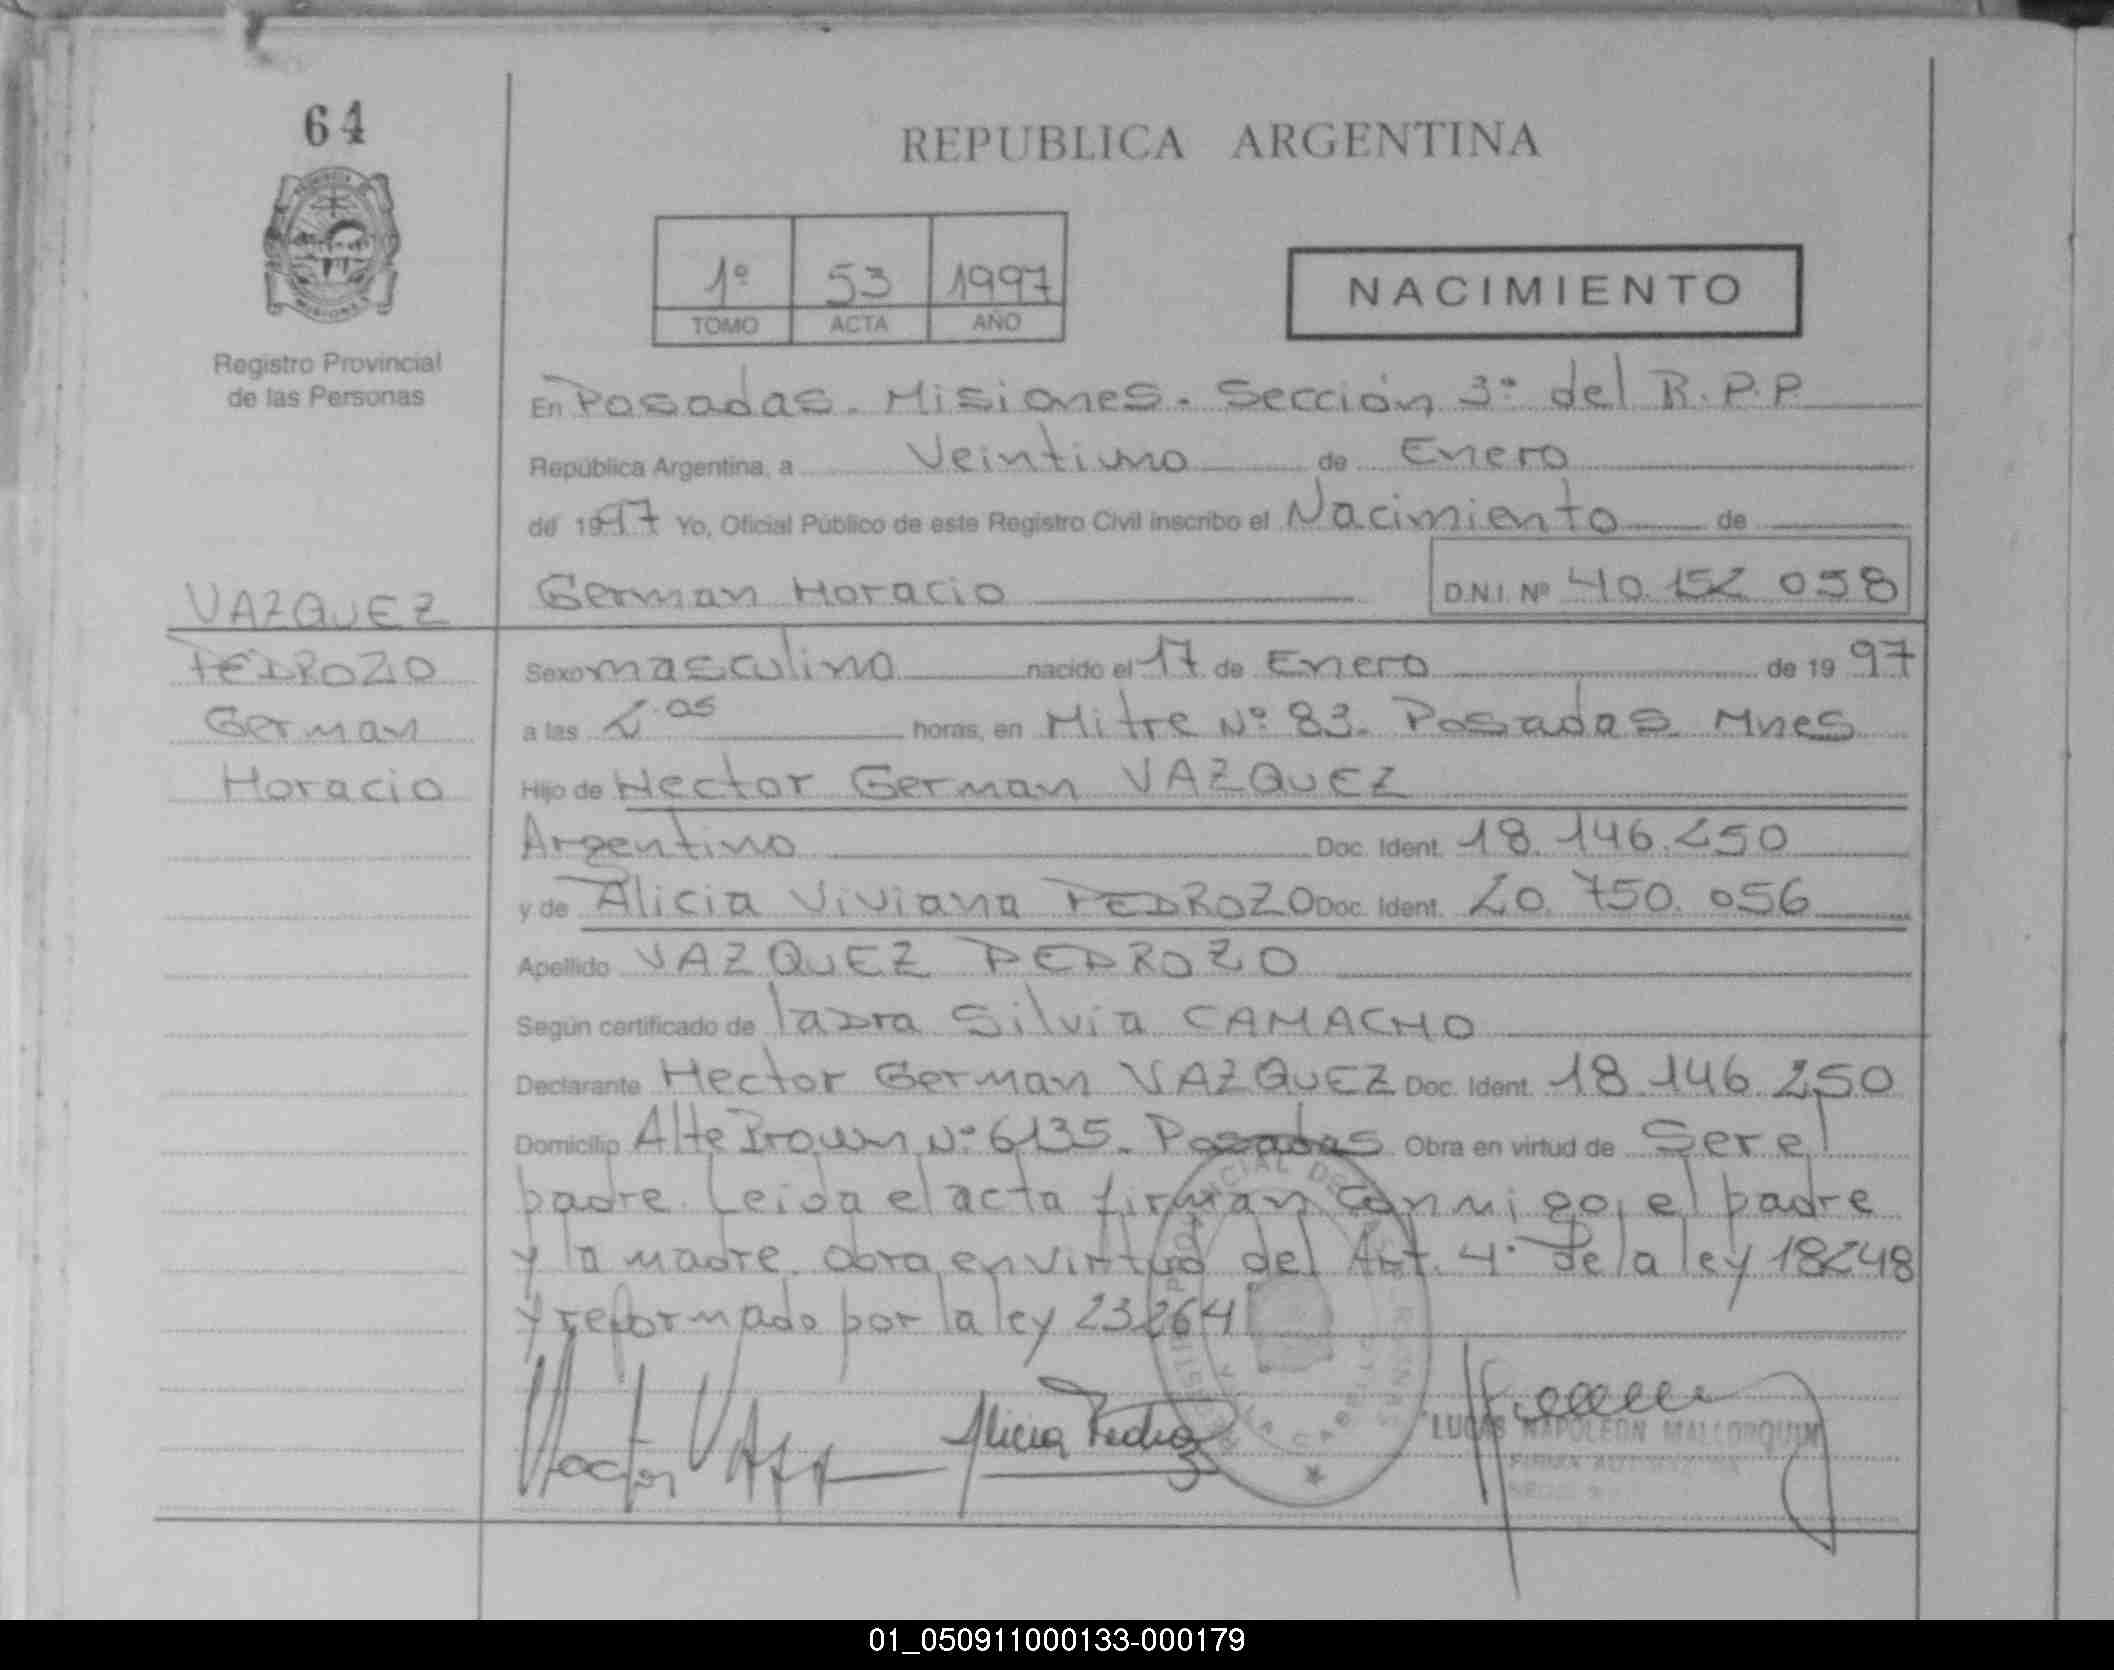 64
REPUBLICA ARGENTINA
1º 53 1997
TOMO ACTA AÑO
NACIMIENTO
Registro Provincial
de las Personas
En Posadas. Misiones. Sección 3º del R.P.P.
República Argentina, a Veintiuno de Enero
de 1997 Yo, Oficial Público de este Registro Civil inscribo el Nacimiento de
German Horacio D.N.I. Nº 40.152.058
VAZQUEZ
PEDROZO
German
Horacio
Sexo masculino nacido el 17 de Enero de 1997
a las 2.05 horas, en Mitre Nº 83. Posadas Mnes
Hijo de Hector German VAZQUEZ
Argentino Doc. Ident. 18.146.250
y de Alicia Viviana PEDROZO Doc. Ident. 20.750.056
Apellido VAZQUEZ PEDROZO
Según certificado de la Dra Silvia CAMACHO
Declarante Hector German VAZQUEZ Doc. Ident. 18.146.250
Domicilio Alte Brown Nº 6135. Posadas Obra en virtud de Ser el
padre. Leida el acta firman conmigo, el padre
y la madre. Obra en virtud del Art. 4º De la ley 18248
y reformado por la ley 23264
Alicia Pedrozo
LUCAS NAPOLEON MALLORQUIN
01_050911000133-000179